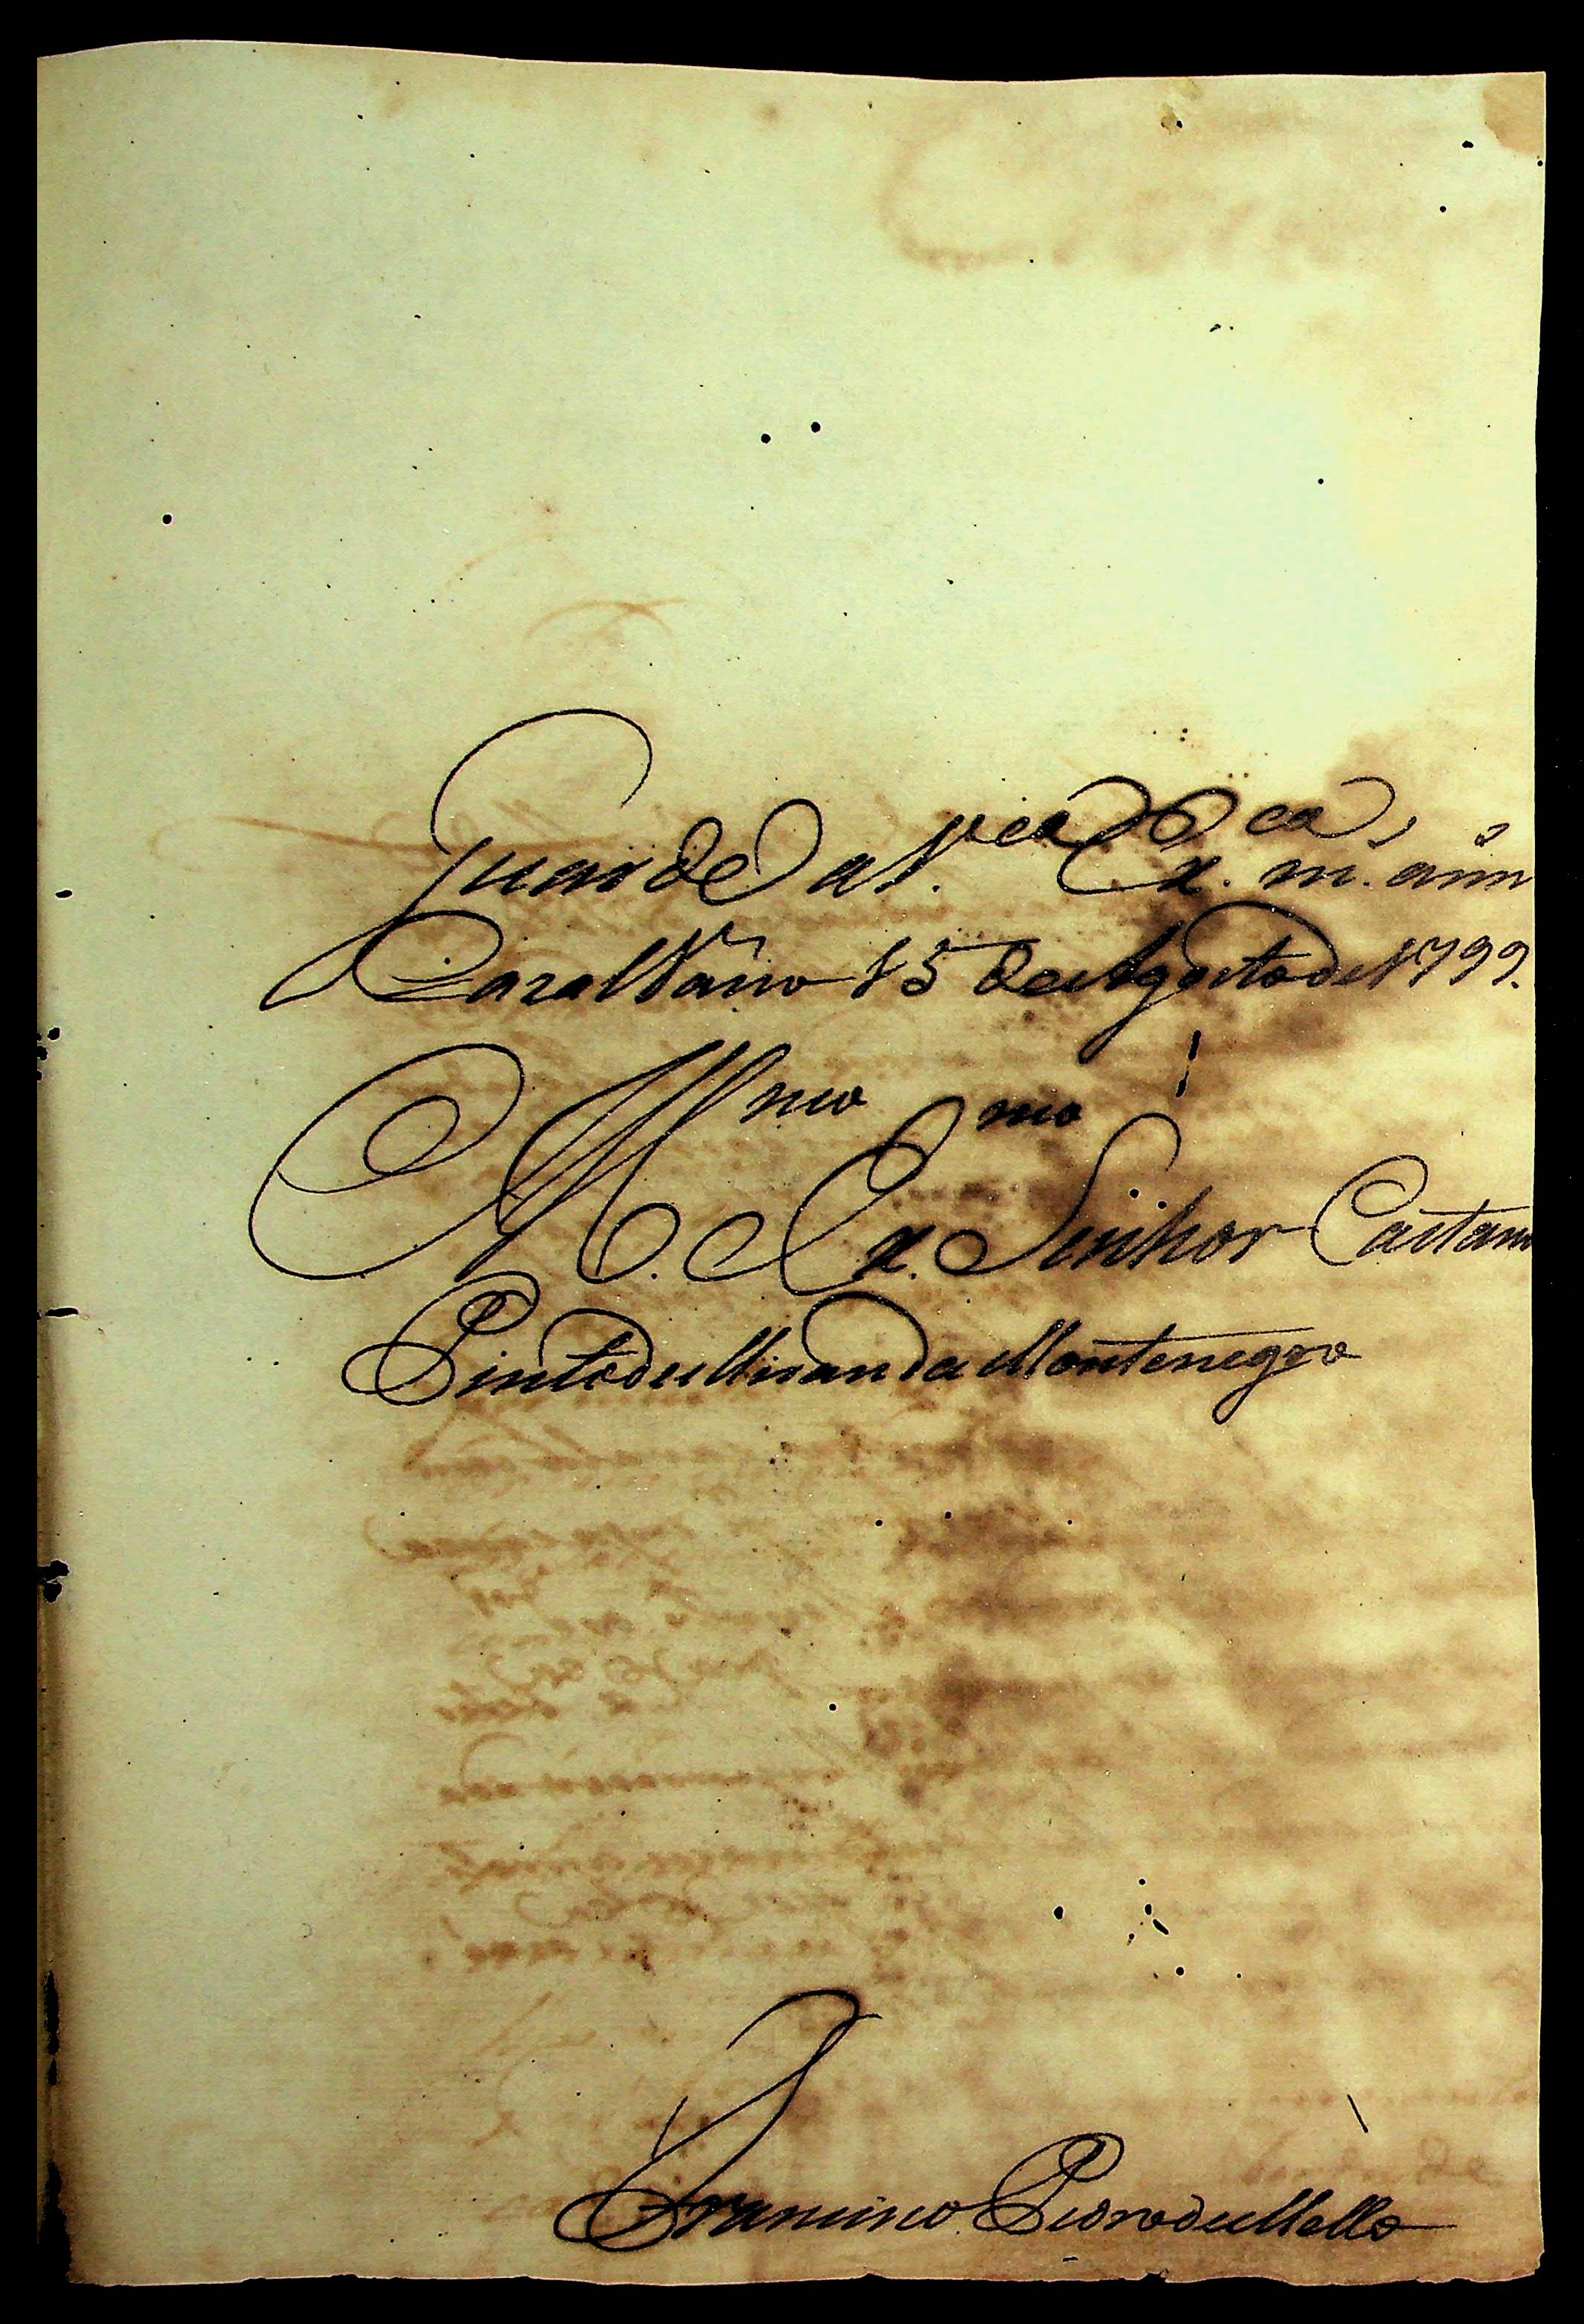 guarde a V.ca Ex.ca m. ann
Casal Vasco 15 de Agosto de 1799.
Ill.mo Ex.mo Senhor Caetano
Pinto de Miranda Montenegro
Francisco Pedro de Mello